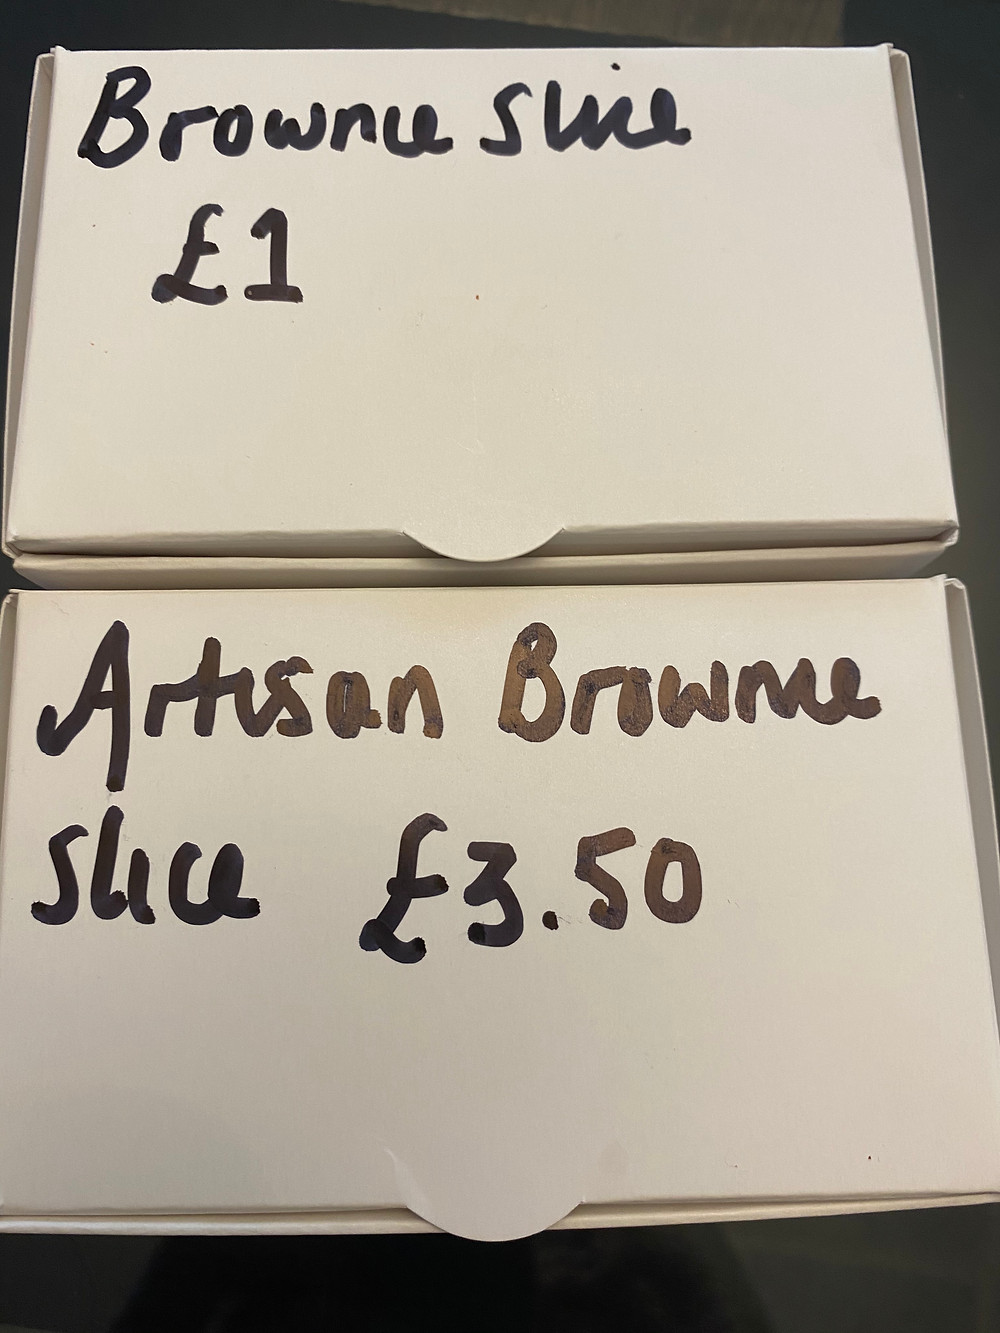 Brownie slice
£1
Artisan Brownie
slice £3.50